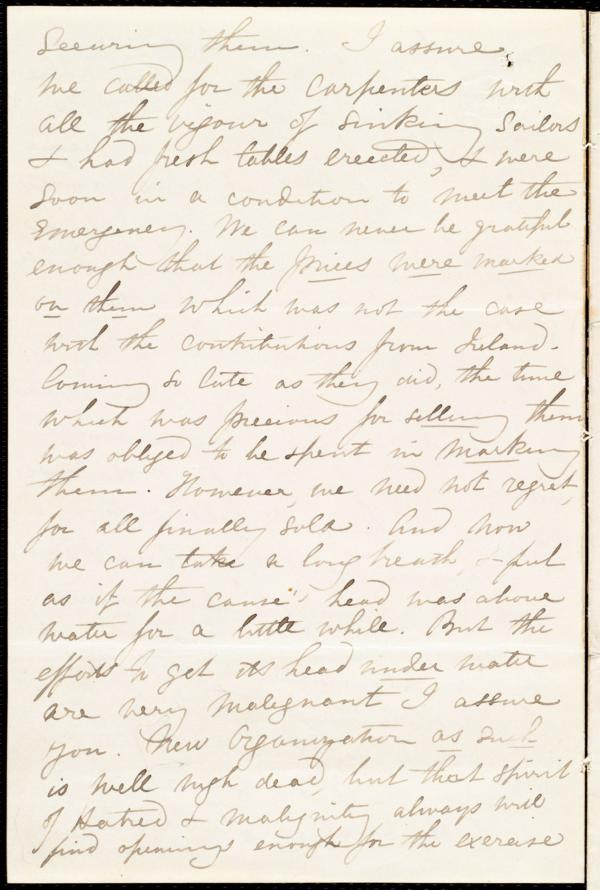 securing them. I assure
we called for the carpenters with
all the vigour of sinking Sailors
& had fresh tables erected, & were
soon in a condition to meet the
emergency. We can never be grateful
enough that the prices were marked
on them which was not the case
with the contributions from Ireland.
Coming so late as they did, the time
which was precious for selling them
was obliged to be spent in marking
them. However, we need not regret,
for all finally sold. And now
we can take a long breath, & feel
as if the cause's head was above
water for a little while. But the
efforts to get its head under water
are very malignant I assure
you. New Organization as such
is well nigh dead, but that spirit
of Hatred & malignity always will
find openings enough for the exercise